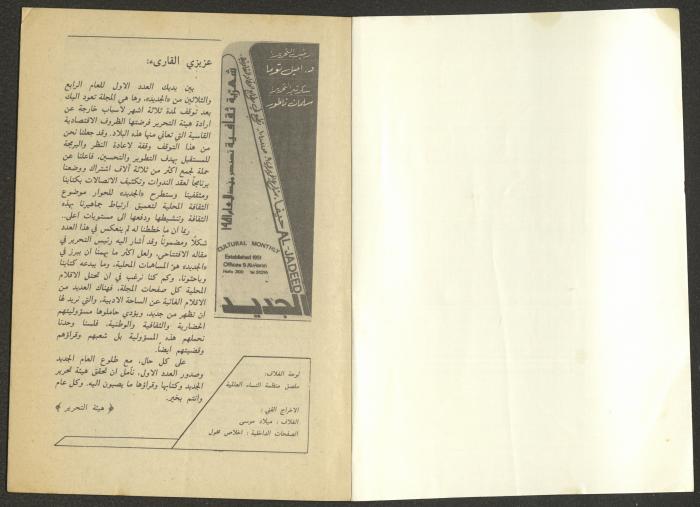 عزيزي القارىء:
بين يديك العدد الاول للعام الرابع
والثلاثين من «الجديد»، وها هي المجلة تعود اليك
بعد توقف لمدة ثلاثة اشهر لأسباب خارجة عن
ارادة هيئة التحرير فرضتها الظروف الاقتصادية
القاسية التي تعاني منها هذه البلاد. وقد جعلنا نحن
من هذا التوقف وقفة لاعادة النظر والبرمجة
للمستقبل بهدف التطوير والتحسين، فاعلنا عن
حملة لجمع اكثر من ثلاثة آلاف اشتراك ووضعنا
برنامجاً لعقد الندوات وتكثيف الاتصالات بكتابنا
ومثقفينا وستطرح «الجديد» للحوار موضوع
الثقافة المحلية لتعميق ارتباط جماهيرنا بهذه
الثقافة وتنشيطها ودفعها الى مستويات اعلى..
ربما ان ما خططنا له لم ينعكس في هذا العدد
شكلاً ومضموناً وقد أشار اليه رئيس التحرير في
مقاله الافتتاحي، ولعل اكثر ما يهمنا ان يبرز في
«الجديد» هو: المساهمات المحلية، وما يبدعه كتابنا
وباحثونا، وكم كنا نرغب في ان تحتل الاقلام
المحلية كل صفحات المجلة، فهناك العديد من
الاقلام الغائبة عن الساحة الادبية، والتي نريد لها
ان تظهر من جديد، ويؤدي حاملوها مسؤوليتهم
الحضارية والثقافية والوطنية، فلسنا وحدنا
نحملهم هذه المسؤولية بل شعبهم وقراؤهم
وقضيتهم ايضاً.
على كل حال، مع طلوع العام الجديد
وصدور العدد الاول، نأمل ان تحقق هيئة تحرير
الجديد وكتابها وقراؤها ما يصبون اليه. وكل عام
وانتم بخير.
﴿ هيئة التحرير ﴾
رئيس التحرير
د. اميل توما
سكرتير التحرير
سلمان ناطور
شهرية ثقافية تصدر من حيفا
AL-JADEED
CULTURAL MONTHLY
Established 1951
الجديد
لوحة الغلاف:
ملصق منظمة النساء العالمية
الاخراج الفني:
الغلاف: ميلاد موسى
الصفحات الداخلية: